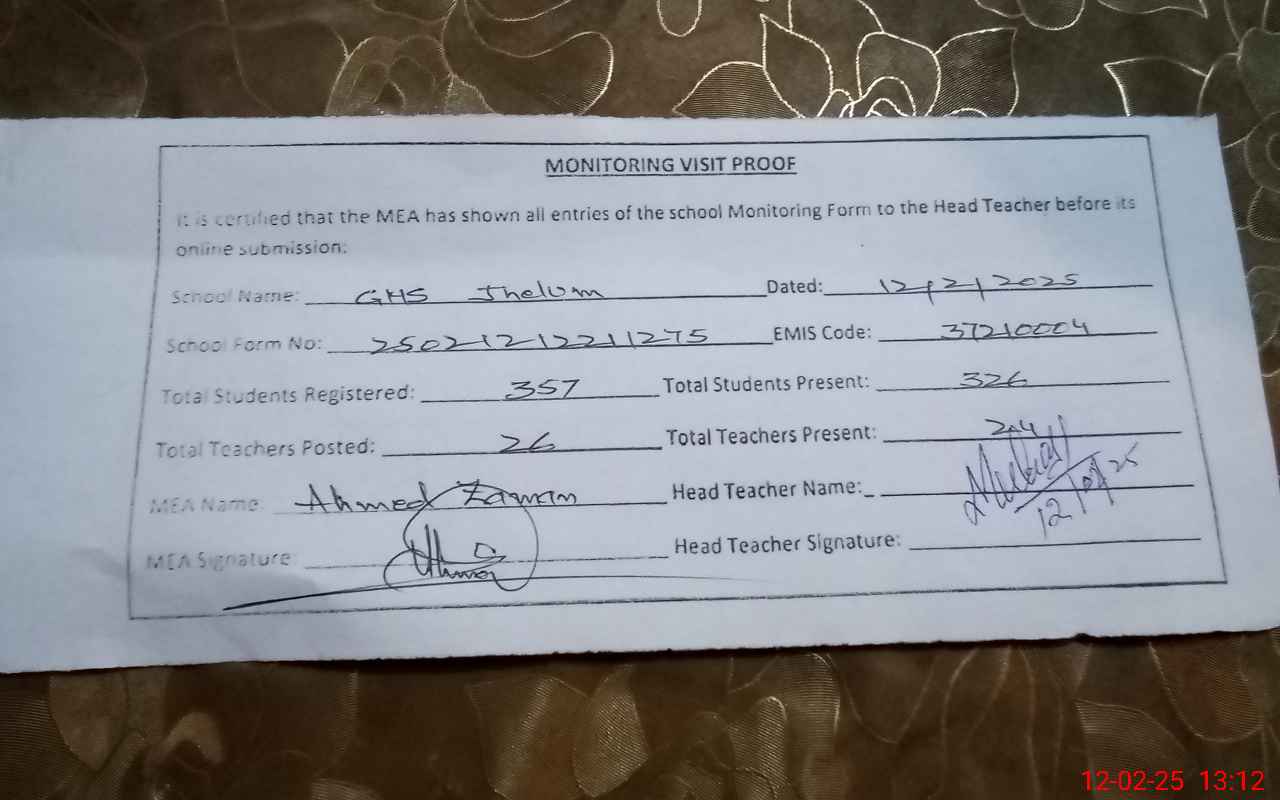 MONITORING VISIT PROOF
It is certified that the MEA has shown all entries of the school Monitoring Form to the Head Teacher before its
online submission:
School Name: GHS Jhelum Dated: 12/2/2025
School Form No: 25021212211275 EMIS Code: 37210004
Total Students Registered: 357 Total Students Present: 326
Total Teachers Posted: 26 Total Teachers Present: 24
MEA Name: Ahmed Zaman Head Teacher Name:
MEA Signature: Head Teacher Signature:
12-02-25 13:12